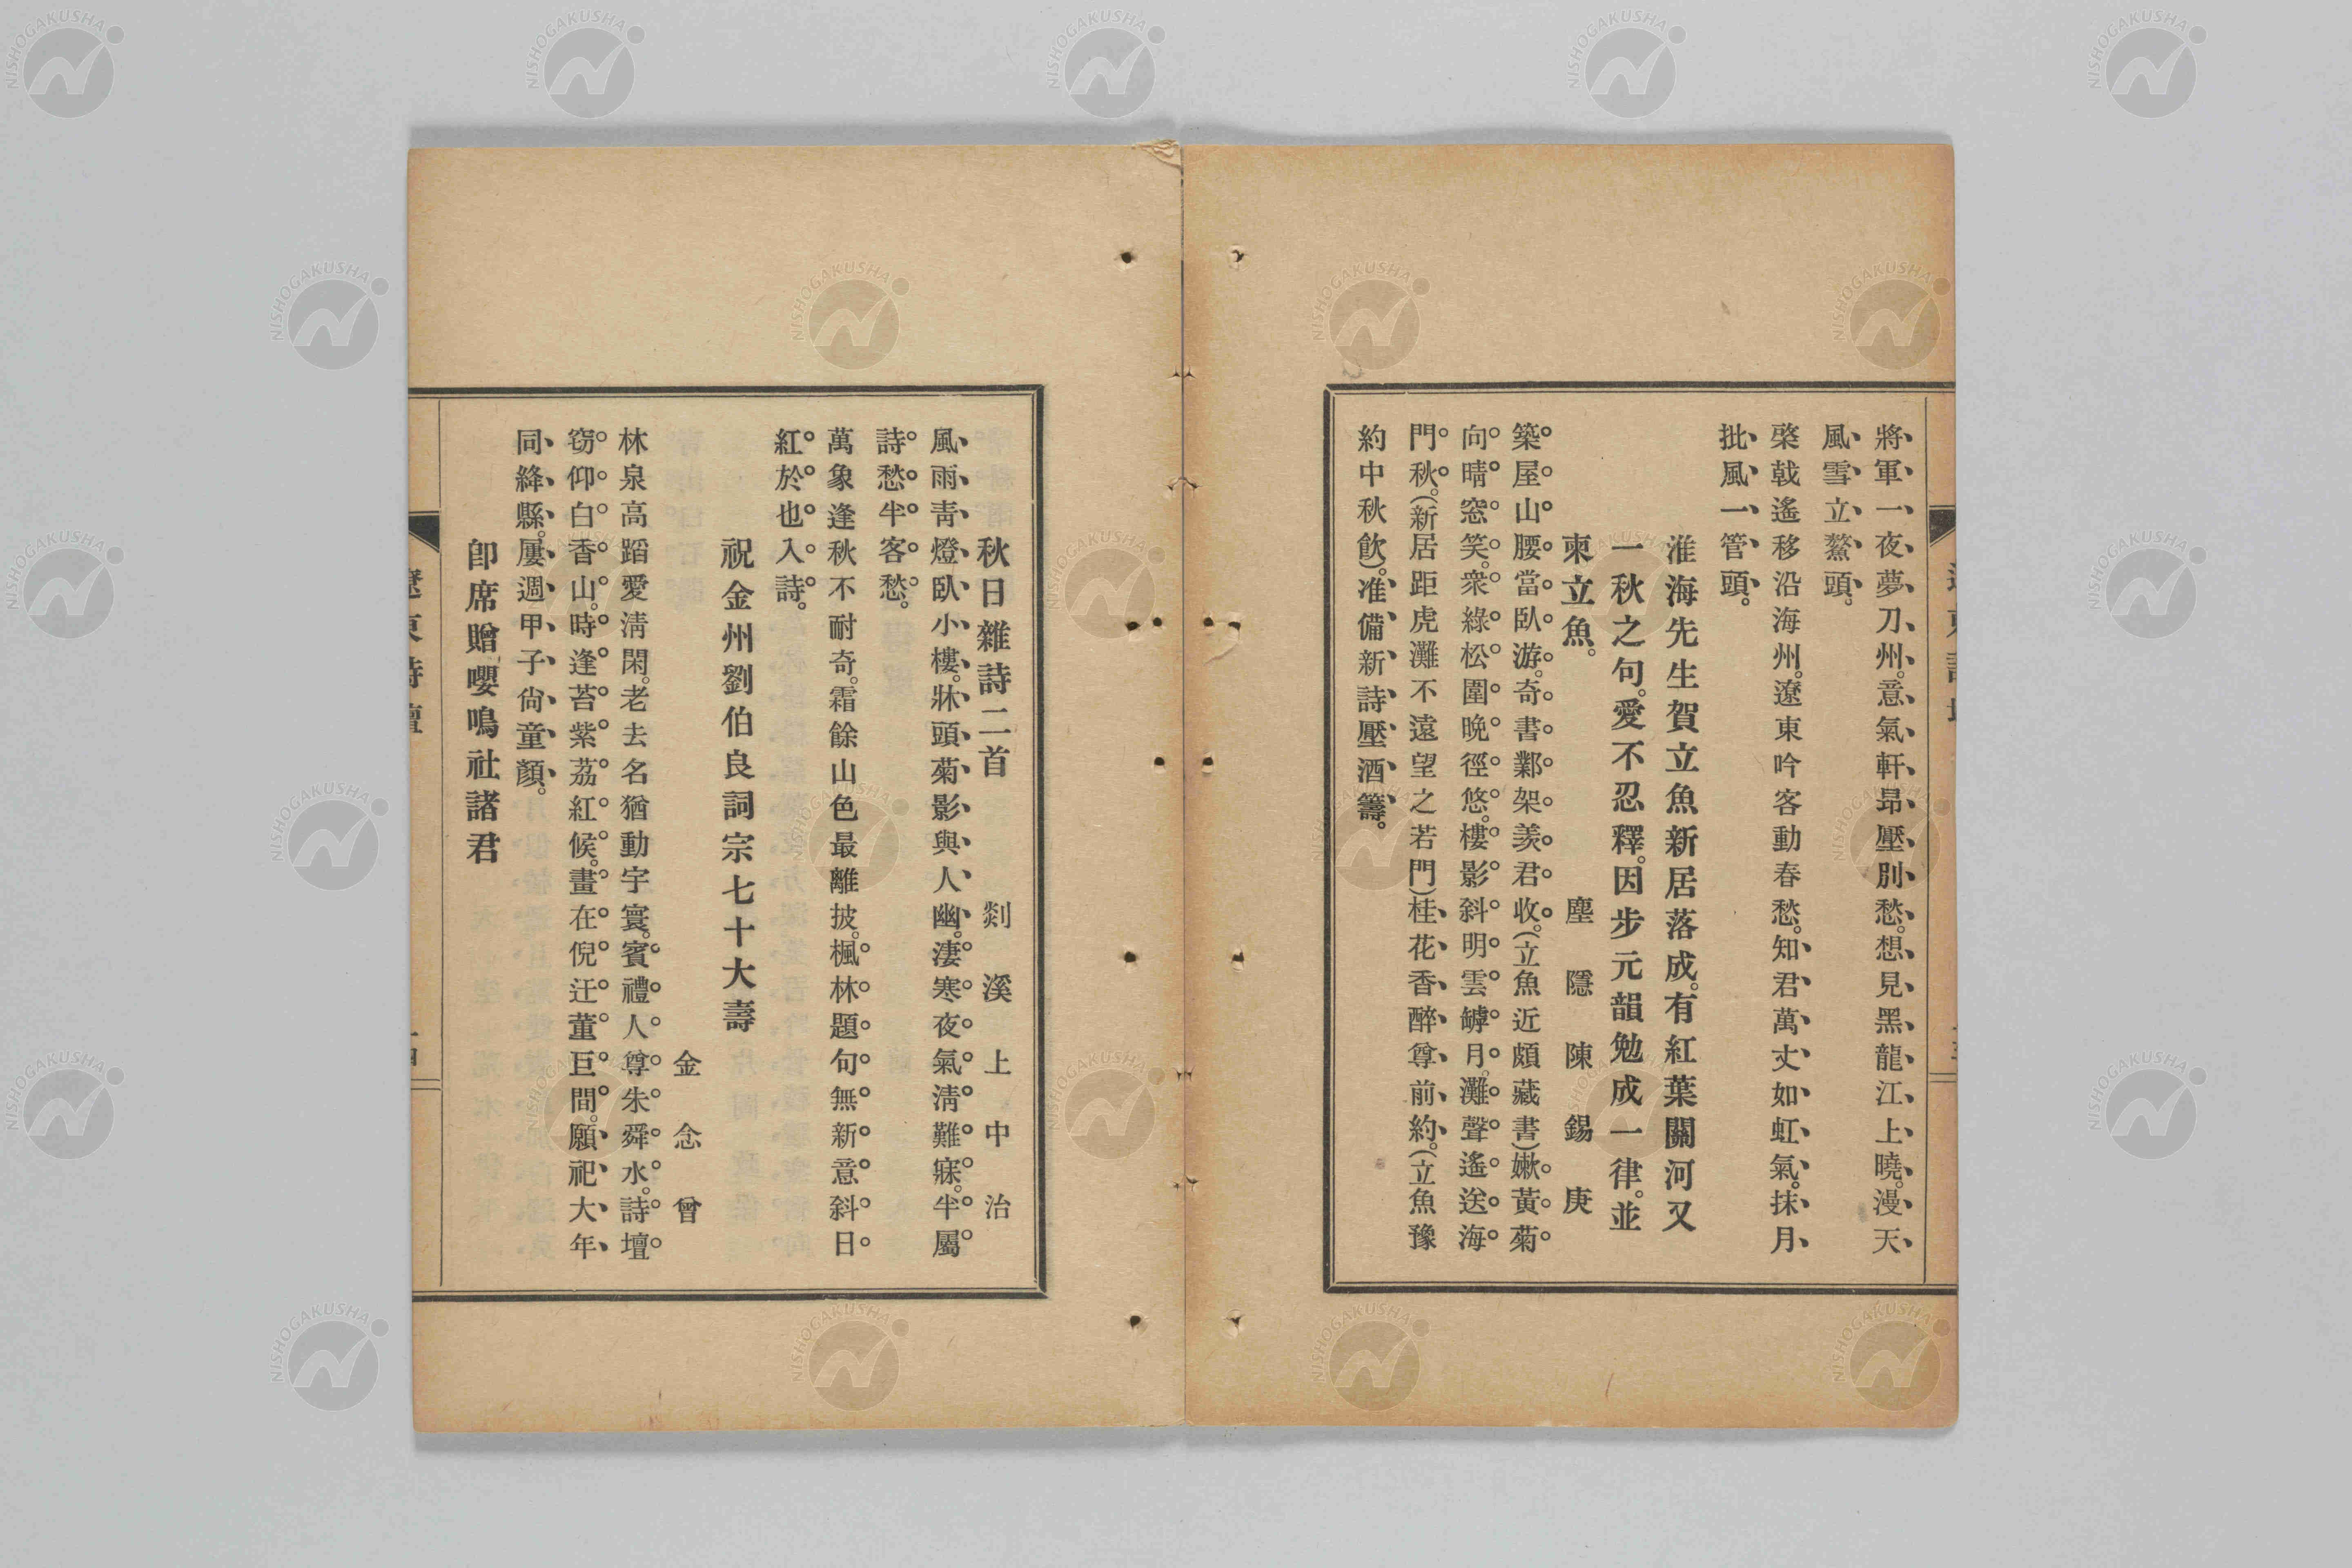 將軍一夜夢刀州。意氣軒昻壓別愁。想見黑龍江上曉。漫天
風雪立鰲頭。
棨戟遙移沿海州。遼東吟客動春愁。知君萬丈如虹氣。抹月
批風一管頭。
淮海先生賀立魚新居落成。有紅葉關河又
一秋之句。愛不忍釋。因步元韻勉成一律。並
柬立魚。
塵隱陳錫庚
築屋山腰當臥游。奇書鄴架羨君收。(立魚近頗藏書)嫩黃菊
向晴窓笑。衆綠松圍晩徑悠。樓影斜明雲罅月。灘聲遙送海
門秋。(新居距虎灘不遠望之若門)桂花香醉尊前約。(立魚豫
約中秋飮)。准備新詩壓酒籌。
秋日雜詩二首
剡溪上中治
風雨靑燈臥小樓。牀頭菊影與人幽。淒寒夜氣淸難寐。半屬
詩愁半客愁。
萬象逢秋不耐奇。霜餘山色最離披。楓林題句無新意斜日
紅於也入詩。
祝金州劉伯良詞宗七十大壽
金念曾
林泉高蹈愛淸閑。老去名猶動宇寰。賓禮人尊朱舜水。詩壇
窃仰白香山。時逢苔紫荔紅候。畫在倪迂董巨間。願祀大年
同絳縣。屢週甲子尙童顏。
卽席贈嚶鳴社諸君
遼東詩壇
十四